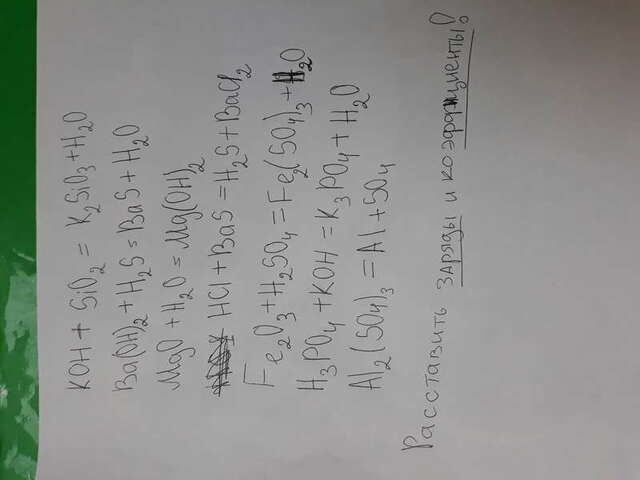 KOH + SiO₂ = K₂SiO₃ + H₂O
Ba(OH)₂ + H₂S = BaS + H₂O
MgO + H₂O = Mg(OH)₂
HCl + BaS = H₂S + BaCl₂
Fe₂O₃ + H₂SO₄ = Fe₂(SO₄)₃ + H₂O
H₃PO₄ + KOH = K₃PO₄ + H₂O
Al₂(SO₄)₃ = Al + SO₄
Расставить заряды и коэффициенты!